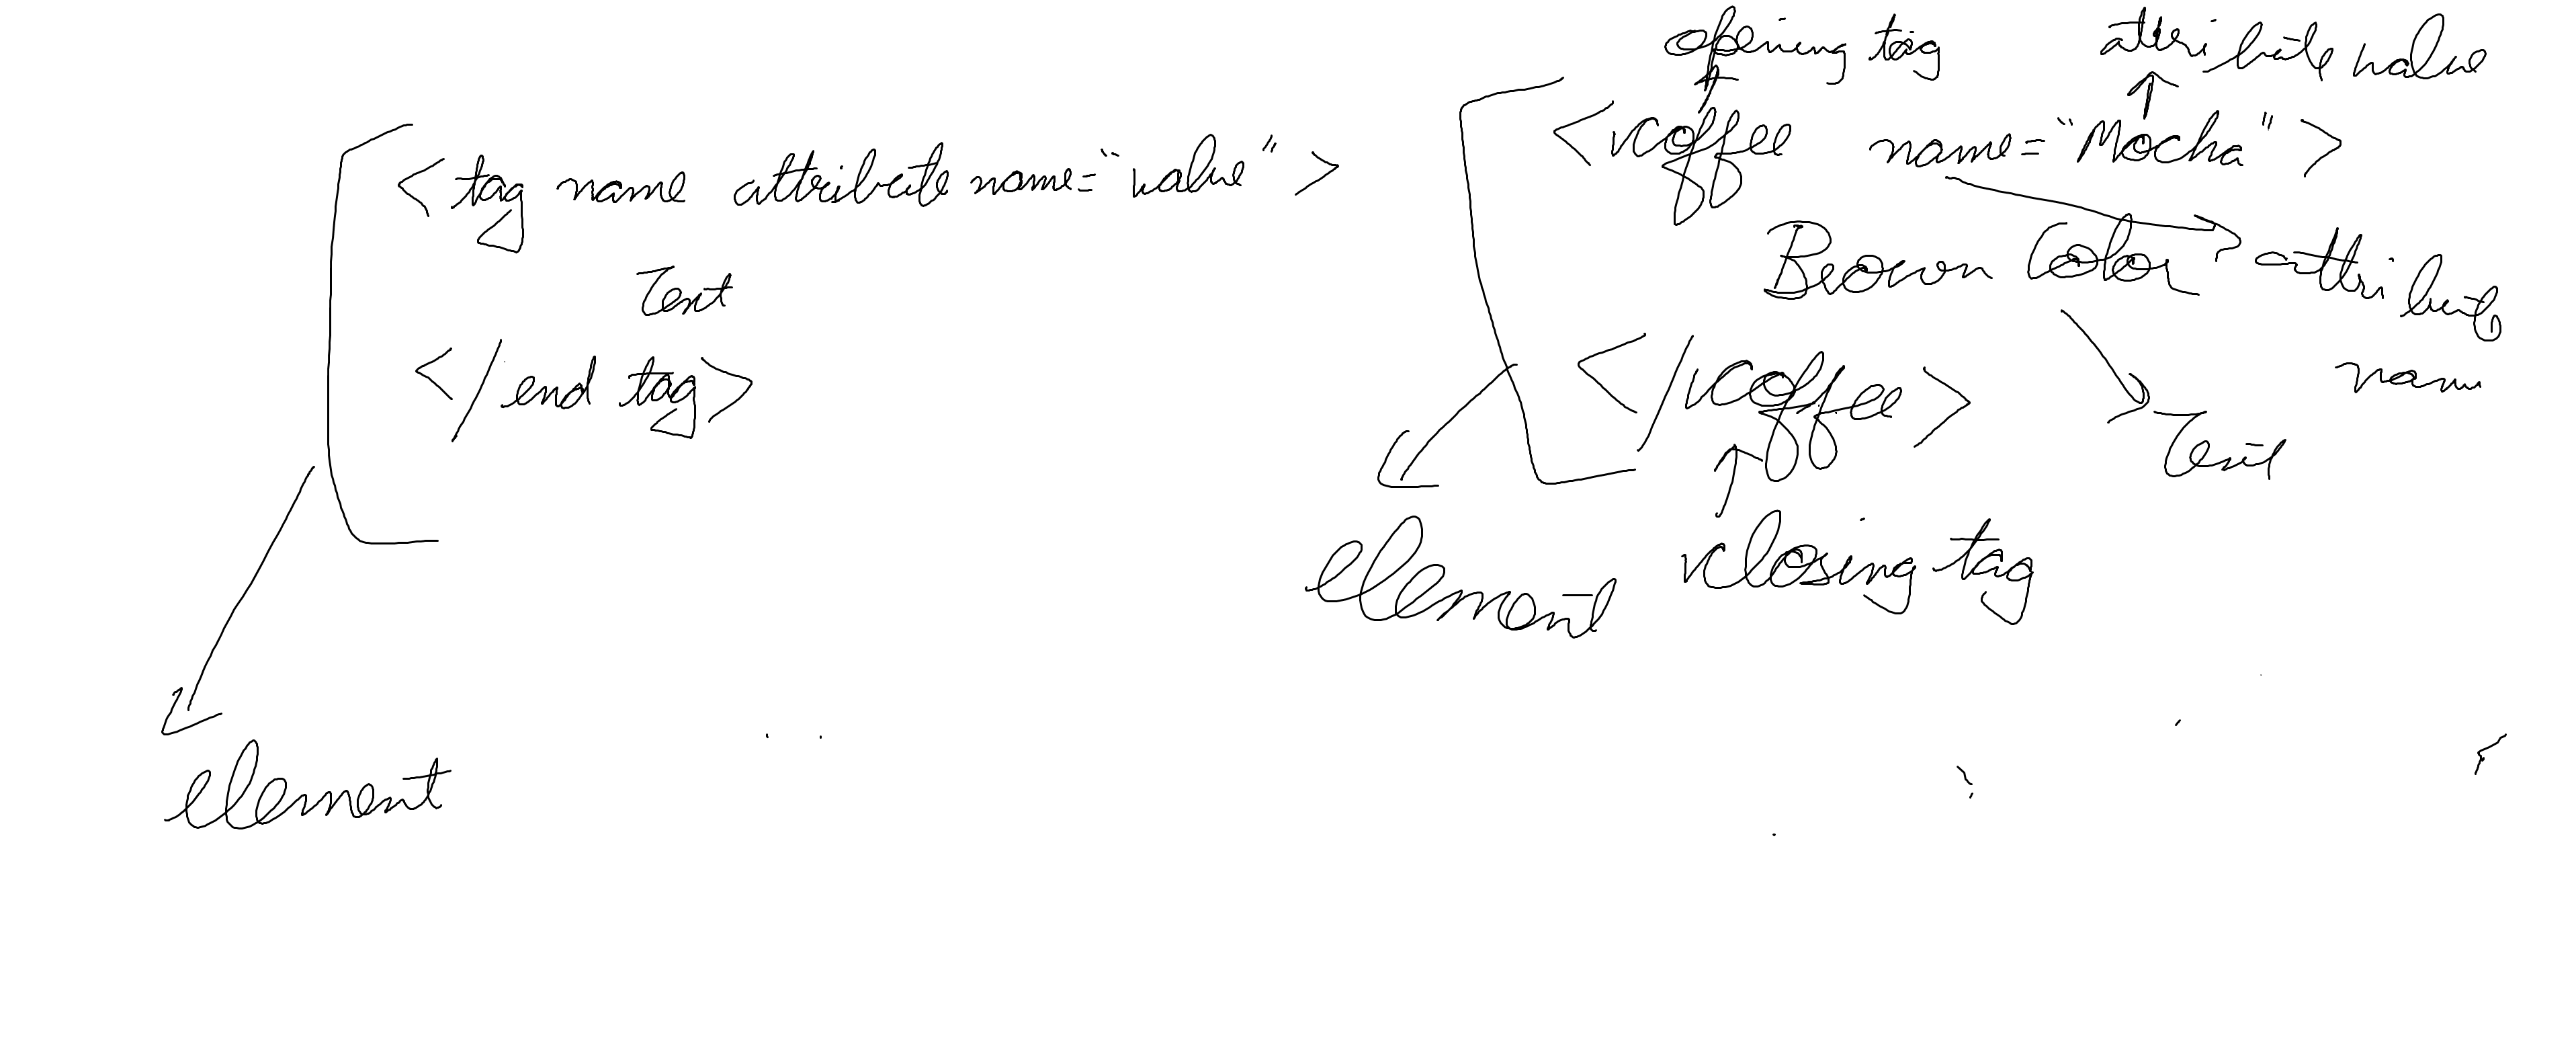 <tag name attribute name="value">
Text
</end tag>
element
opening tag
attribute value
<coffee name="Mocha">
Brown Color
attribute
name
</coffee>
Text
element
closing tag